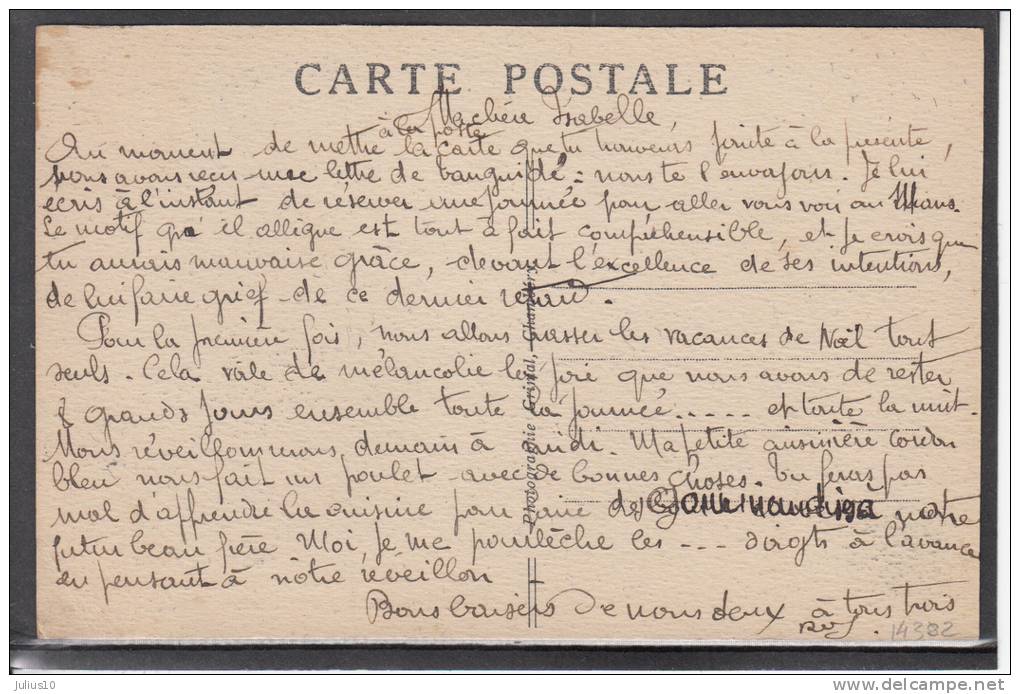 CARTE POSTALE
Ma chère Isabelle,
à la poste
Au moment de mettre la carte que tu trouveras jointe à la présente,
nous avons reçu une lettre de : nous te l'envoyons. Je lui
écris à l'instant de réserver une journée pour aller vous voir au Mans.
Le motif qu'il allègue est tout à fait compréhensible, et je crois que
tu aurais mauvaise grâce, devant l'excellence de ses intentions,
de lui faire grief de ce dernier retard.
Pour la première fois, nous allons passer les vacances de Noël tout
seuls. Cela voile de mélancolie la joie que nous avons de rester
8 grands jours ensemble toute la journée..... et toute la nuit.
Nous réveillonnons demain à midi. Ma petite cuisinière cordon
bleu nous fait un poulet avec de bonnes choses. Tu feras pas
mal d'apprendre la cuisine pour faire des notre
futur beau frère. Moi, je me pourlèche les --- doigts à l'avance
en pensant à notre réveillon
Bons baisers de nous deux à tous trois
14382
Photographie Grimal, Chambéry
julius10
delcampe.net